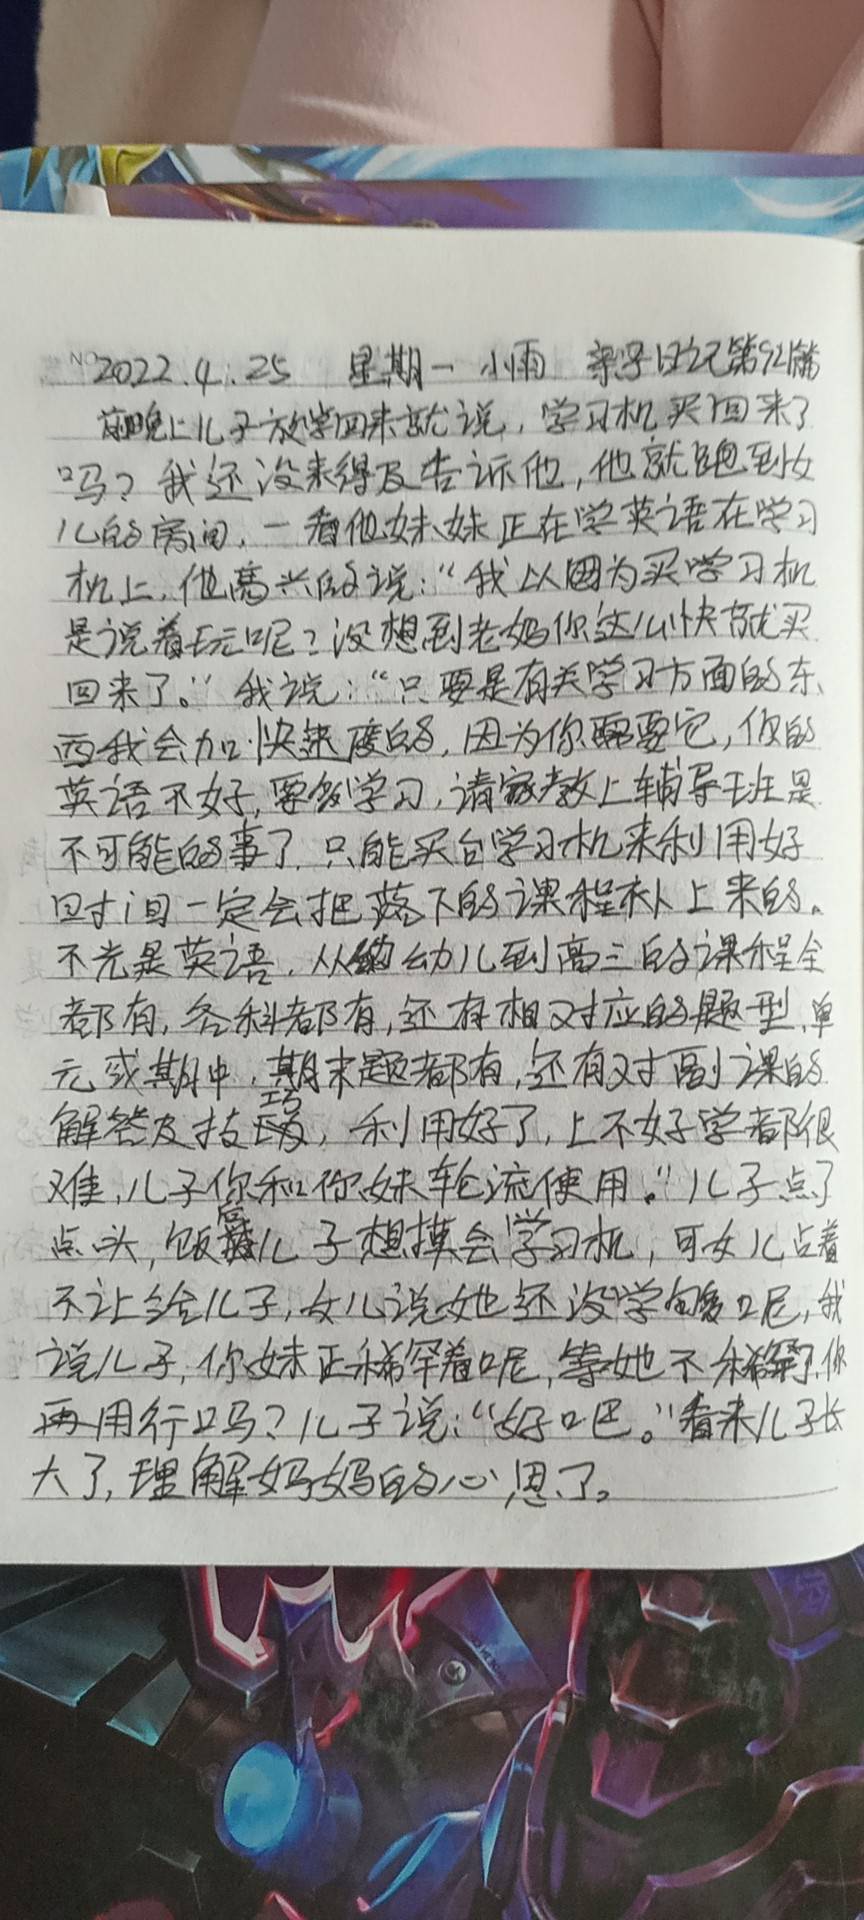 NO.
2022.4.25 星期一 小雨 亲子日记第92篇
前晚上儿子放学回来就说，学习机买回来了
吗？我还没来得及告诉他，他就跑到女
儿的房间，一看他妹妹正在学英语在学习
机上，他高兴的说：“我以因为买学习机
是说着玩呢？没想到老妈你这么快就买
回来了。”我说：“只要是有关学习方面的东
西我会加快速度的，因为你需要它，你的
英语不好，要多学习，请家教上辅导班是
不可能的事了，只能买台学习机来利用好
时间一定会把落下的课程补上来的。
不光是英语，从幼儿到高三的课程全
都有，各科都有，还有相对应的题型，单
元或期中，期末题都有，还有对副课的
解答及技巧，利用好了，上不好学都很
难，儿子你和你妹轮流使用。”儿子点了
点头，饭后儿子想摸会学习机，可女儿占着
不让给儿子，女儿说她还没学够呢，我
说儿子，你妹正稀罕着呢，等她不稀罕了，你
再用行吗？儿子说：“好吧。”看来儿子长
大了，理解妈妈的心思了。